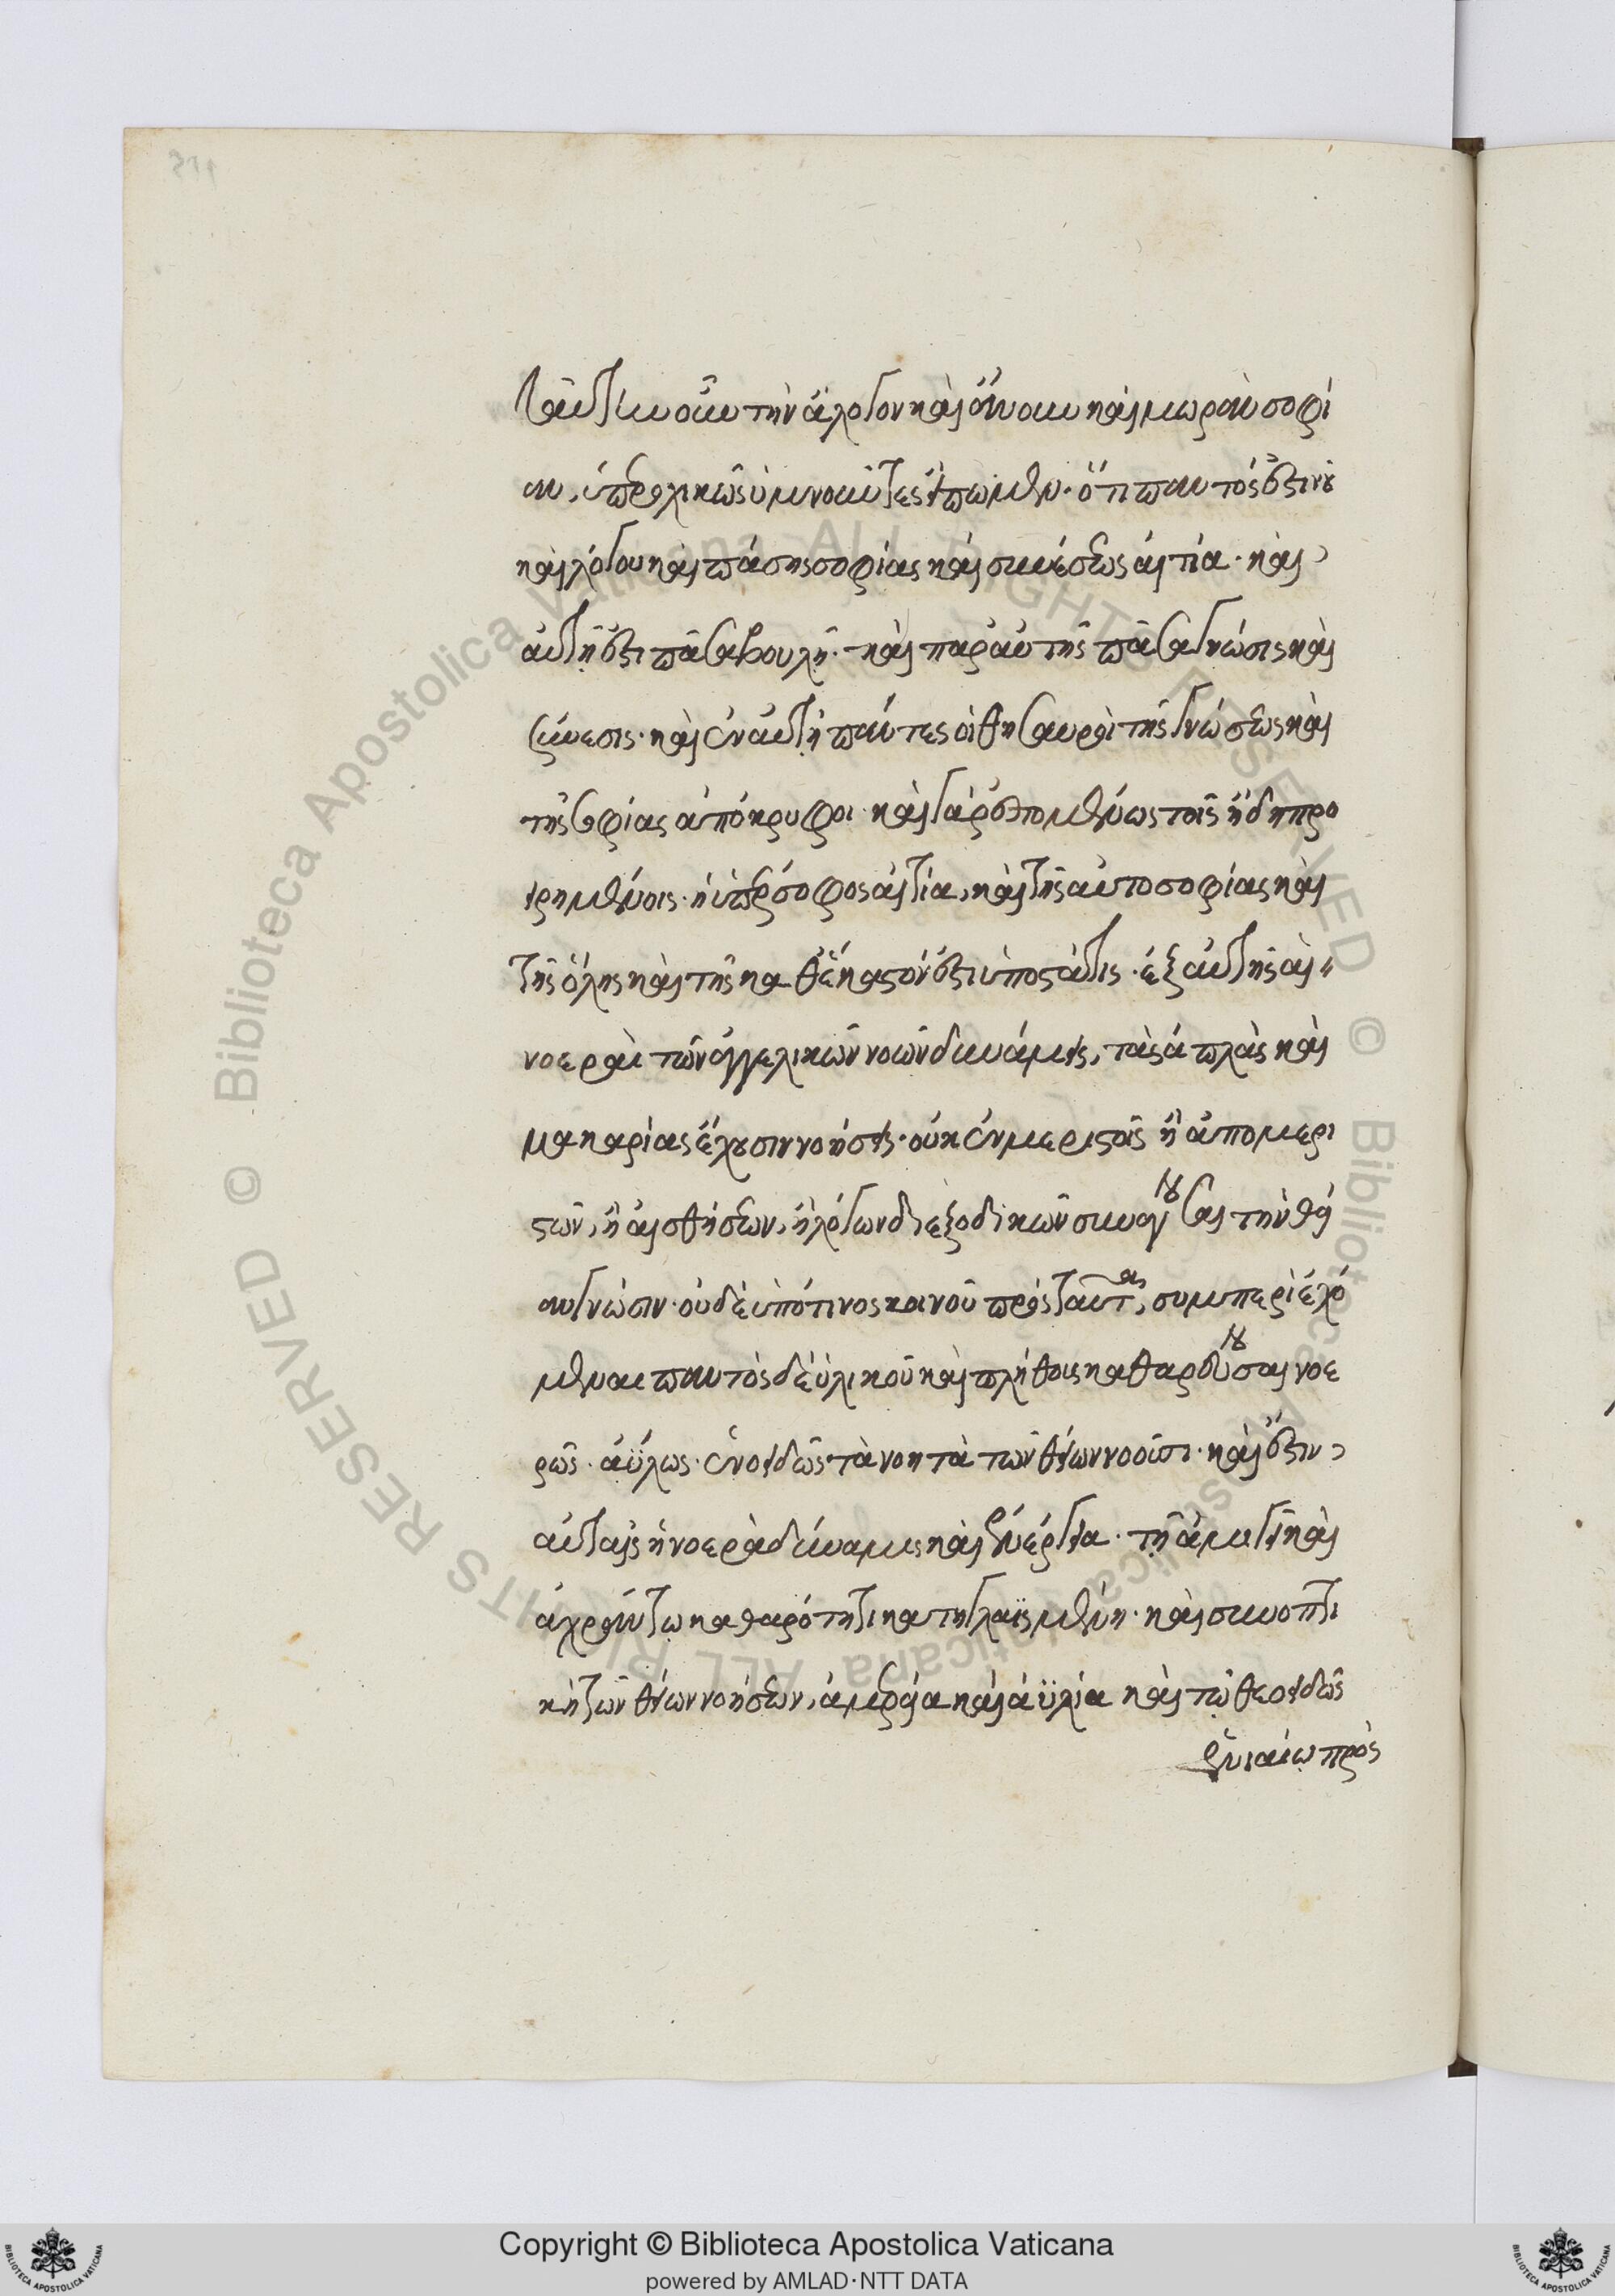 ταύτην οὖν τὴν ἄλογον καὶ ἄνουν καὶ μωρὰν σοφί
αν, ὑπεροχικῶς ὑμνοῦντες εἴπωμεν· ὅτι παντός ἐστι νοῦ
καὶ λόγου καὶ πάσης σοφίας καὶ συνέσεως αἰτία· καὶ
αὐτῆς ἐστι πᾶσα βουλή· καὶ παρ' αὐτῆς πᾶσα γνῶσις καὶ
σύνεσις· καὶ ἐν αὐτῇ πάντες οἱ θησαυροὶ τῆς γνώσεως καὶ
τῆς σοφίας ἀπόκρυφοι· καὶ γὰρ ἑπομένως τοῖς ἤδη προ
ειρημένοις· ἡ ὑπέρσοφος αἰτία, καὶ τῆς αὐτοσοφίας καὶ
τῆς ὅλης καὶ τῆς καθ' ἕκαστόν ἐστι ὑποστάτις· ἐξ αὐτῆς αἱ
νοεραὶ τῶν ἀγγελικῶν νοῶν δυνάμεις, τὰς ἁπλὰς καὶ
μακαρίας ἔχουσιν νοήσεις· οὐκ ἐν μεριστοῖς ἢ ἀπὸ μερι
στῶν, ἢ αἰσθήσεων, ἢ λόγων διεξοδικῶν συνάγουσαι τὴν θεί
αν γνῶσιν· οὐδὲ ὑπό τινος κοινοῦ πρὸς ταύτας, συμπεριεχό
μεναι παντὸς δὲ ὑλικοῦ καὶ πλήθους καθαρεύουσαι νοε
ρῶς· ἀΰλως· ἑνοειδῶς τὰ νοητὰ τῶν θείων νοοῦσι· καὶ ἔστιν
αὐταῖς ἡ νοερὰ δύναμις καὶ ἐνέργεια· τῇ ἀμιγεῖ καὶ
ἀχράντῳ καθαρότητι κατηγλαϊσμένη· καὶ συνοπτι
κὴ τῶν θείων νοήσεων, ἀμερείᾳ καὶ ἀϋλίᾳ καὶ τῷ θεοειδῶς
ἑνιαίῳ πρὸς
Copyright © Biblioteca Apostolica Vaticana
powered by AMLAD·NTT DATA